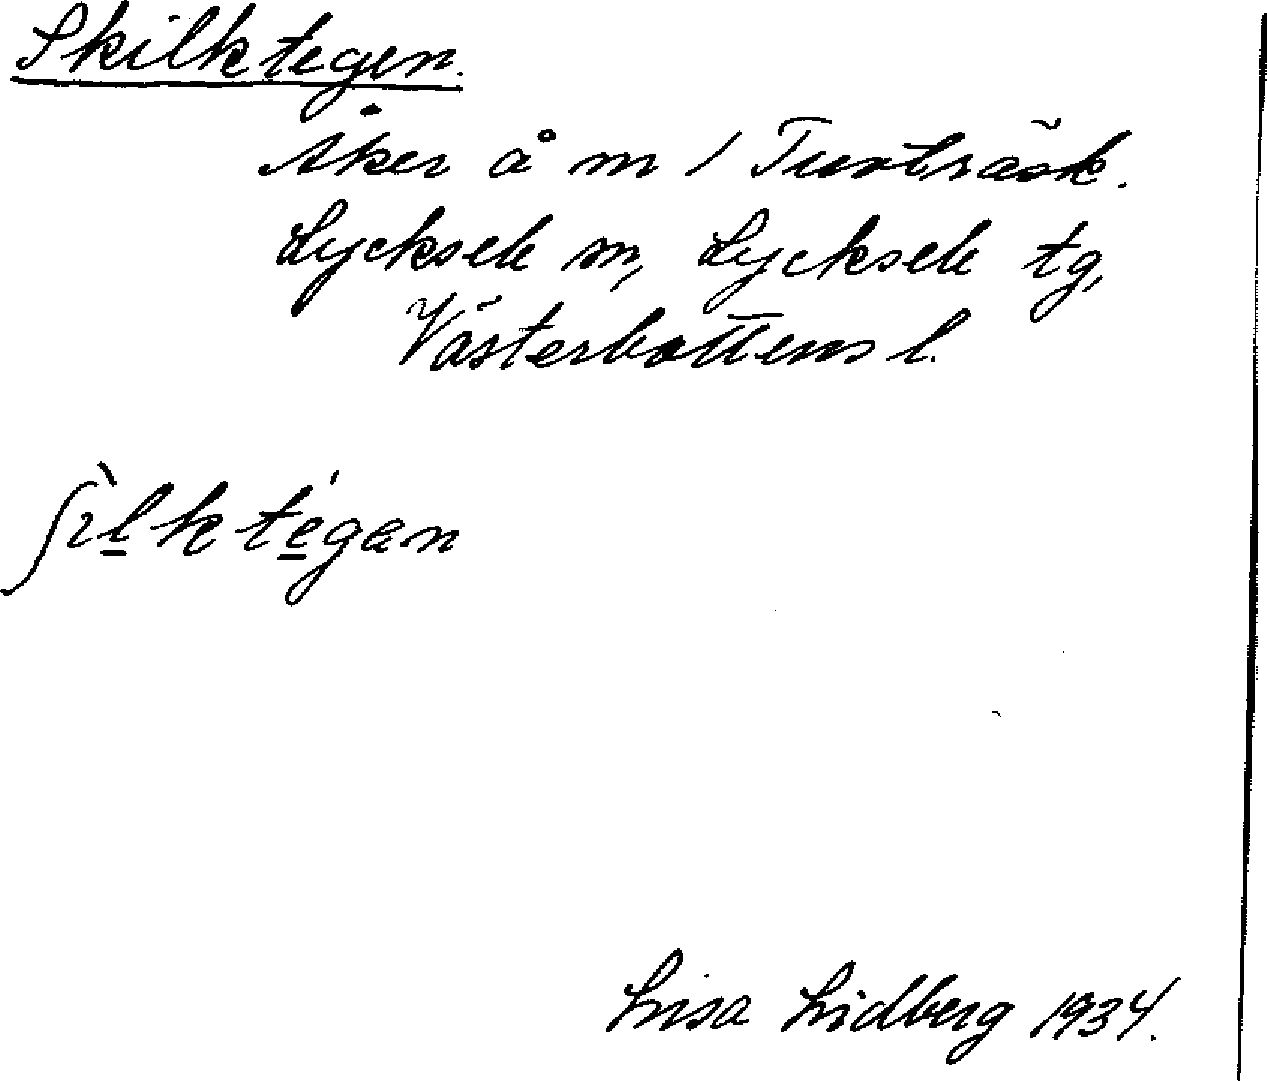 Skilktegen.
Åker å nr 1 Tuvträsk.
Lycksele sn, Lycksele tg,
Västerbottens l.
ʃìlktégan
Lisa Lidberg 1934.